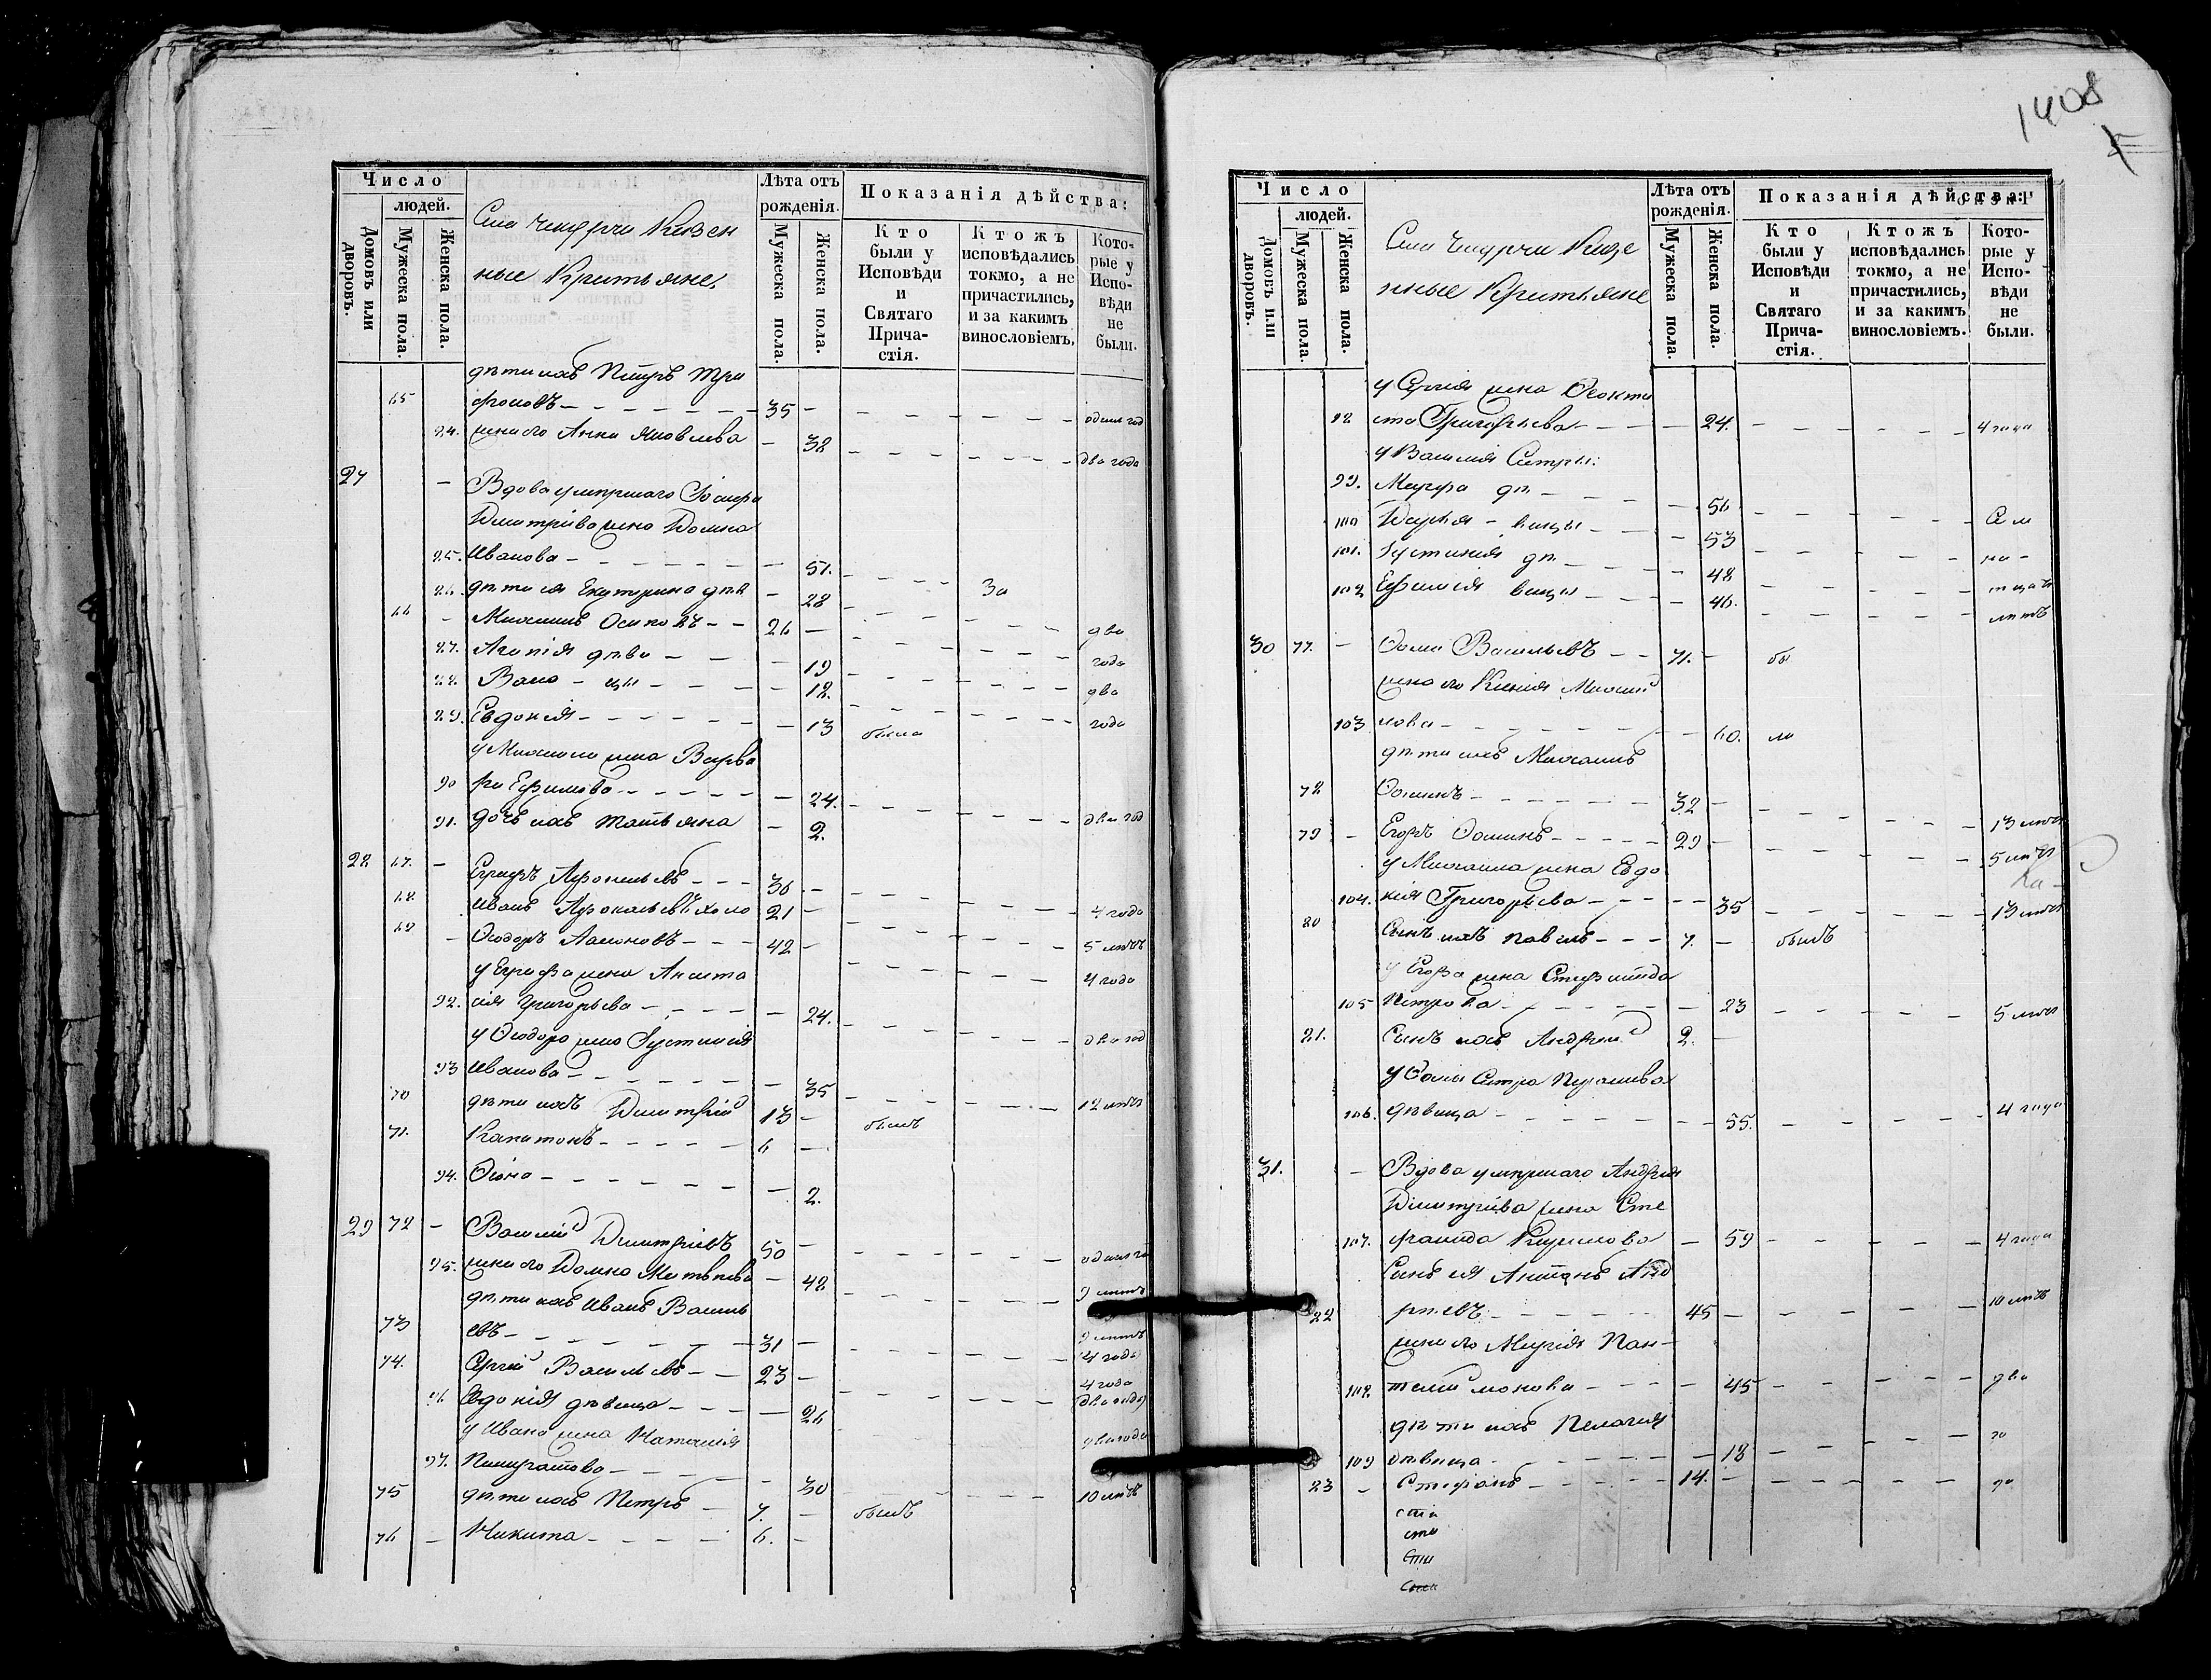 Число
людей.
Домовъ или дворовъ.
Мужеска пола.
Женска пола.
Лѣта отъ рожденія.
Мужеска пола.
Женска пола.
Показанія дѣйства:
Кто были у Исповѣди и Святаго Причастія.
Ктожъ исповѣдались токмо, а не причастились, и за какимъ винословіемъ.
Которые у Исповѣди не были.
Казен
ные
дѣти ихъ Петръ Три
65 фоновъ 35 один год
94. жена его Анна Яковлева 38 два года
27 Вдова умершаго Іосифа
Дмитріева жена Домна
85. Иванова 51.
86. дѣти ея Екатерина дѣв 28 За
66 Михаилъ Осиповъ 26 два
87. Агапія дѣви 19 года
88. Васс цы 18. два
89. Евдокія 13 была года
у Михаила жена Варва
90 ра Ефимова 24. два год
91. дочь ихъ Татьяна 2.
28 67. Афонасьевъ 36
68. Иванъ Афонасьевъ холо 21 4 года
69 Ѳеодоръ 42 5 лѣтъ
жена Анаста 4 года
92. сія Григорьева 24.
у Ѳеодора жена Іустинія два год
93 Иванова 35
70 дѣти ихъ Димитрій 13 былъ 12 лѣтъ
71. Капитонъ 6
94. 2.
29 72 Василій Димитріевъ 50
95. жена его Домна Матвѣева 48
дѣти ихъ Иванъ Василь 9 лѣтъ
73 евъ 31 9 лѣтъ
74. Сергій Васильевъ 23 4 года
96 Евдокія дѣвица 26 два года
у Ивана жена Наталія два года
97. 30
75 дѣти ихъ Петръ 7. былъ 10 лѣтъ
76 Никита 6.
1408
Число
людей.
Домовъ или дворовъ.
Мужеска пола.
Женска пола.
Лѣта отъ рожденія.
Мужеска пола.
Женска пола.
Показанія дѣйства:
Кто были у Исповѣди и Святаго Причастія.
Ктожъ исповѣдались токмо, а не причастились, и за какимъ винословіемъ.
Которые у Исповѣди не были.
Казе
нные
у Сергія жена Ѳеокти
98 ста Григорьева 24. 4 года
у Василія Сестры:
99. Марфа дѣ 56
100 Дарья вицы 53
101. Іустинія дѣ 48
102 Ефимія вицы 46. лѣтъ
30 77. Ѳома Васильевъ 71. бы
жена его Ксенія Михай
103 лова 60. ли
дѣти ихъ Михаилъ
78 Ѳоминъ 32 13 лѣтъ
79 Егоръ Ѳоминъ 29 5 лѣтъ
у Михаила жена Евдо
104. кія Григорьева 35 13 лѣтъ
80 Сынъ ихъ Павелъ 7. былъ
у Егора жена Степанида
105 Петрова 23 5 лѣтъ
81. Сынъ ихъ Андрей 2.
у Ѳомы Сестра
106. дѣвица 55. 4 года
31. Вдова умершаго Андрея
Димитріева жена Сте
107. фанида Кирилова 59 4 года
Сынъ ея Антонъ Анд
82 реевъ 45 10 лѣтъ
жена его Марія Пан
108. телимонова 45 два
дѣти ихъ Пелагія
109 дѣвица 18 го
83 Стефанъ 14. да